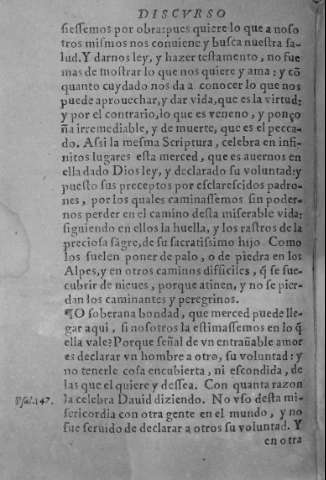 DISCVRSO
sieſſemos por obra: pues quiere lo que a noſo
tros miſmos nos conuiene y buſca nueſtra ſa-
lud. Y darnos ley, y hazer teſtamento, no fue
mas de moſtrar lo que nos quiere y ama: y cõ
quanto cuydado nos da a conocer lo que nos
puede aprouechar, y dar vida, que es la virtud:
y por el contrario, lo que es veneno, y ponço
ña irremediable, y de muerte, que es el pecca-
do. Aſsi la meſma Scriptura, celebra en infi-
nitos lugares eſta merced, que es auernos en
ella dado Dios ley, y declarado ſu voluntad: y
pueſto sus preceptos por eſclareſcidos padro-
nes, por los quales caminaſſemos ſin poder-
nos perder en el camino deſta miſerable vida:
ſiguiendo en ellos la huella, y los raſtros de la
precioſa ſãgre, de ſu ſacratiſsimo hijo Como
los ſuelen poner de palo, o de piedra en los
Alpes, y en otros caminos difficiles, q̃ ſe ſue-
cubrir de nieues, porque atinen, y no ſe pier-
dan los caminantes y peregrinos.
¶O ſoberana bondad, que merced puede lle-
gar aqui, ſi noſotros la eſtimaſſemos en lo q̃
ella vale? Porque ſeñal de vn entrañable amor
es declarar vn hombre a otro, ſu voluntad: y
no tenerle coſa encubierta, ni eſcondida, de
las que el quiere y deſſea. Con quanta razon
Pſal. 147. la celebra Dauid diziendo. No vſo deſta mi-
ſericordia con otra gente en el mundo, y no
fue ſeruido de declarar a otros ſu voluntad. Y
en otra